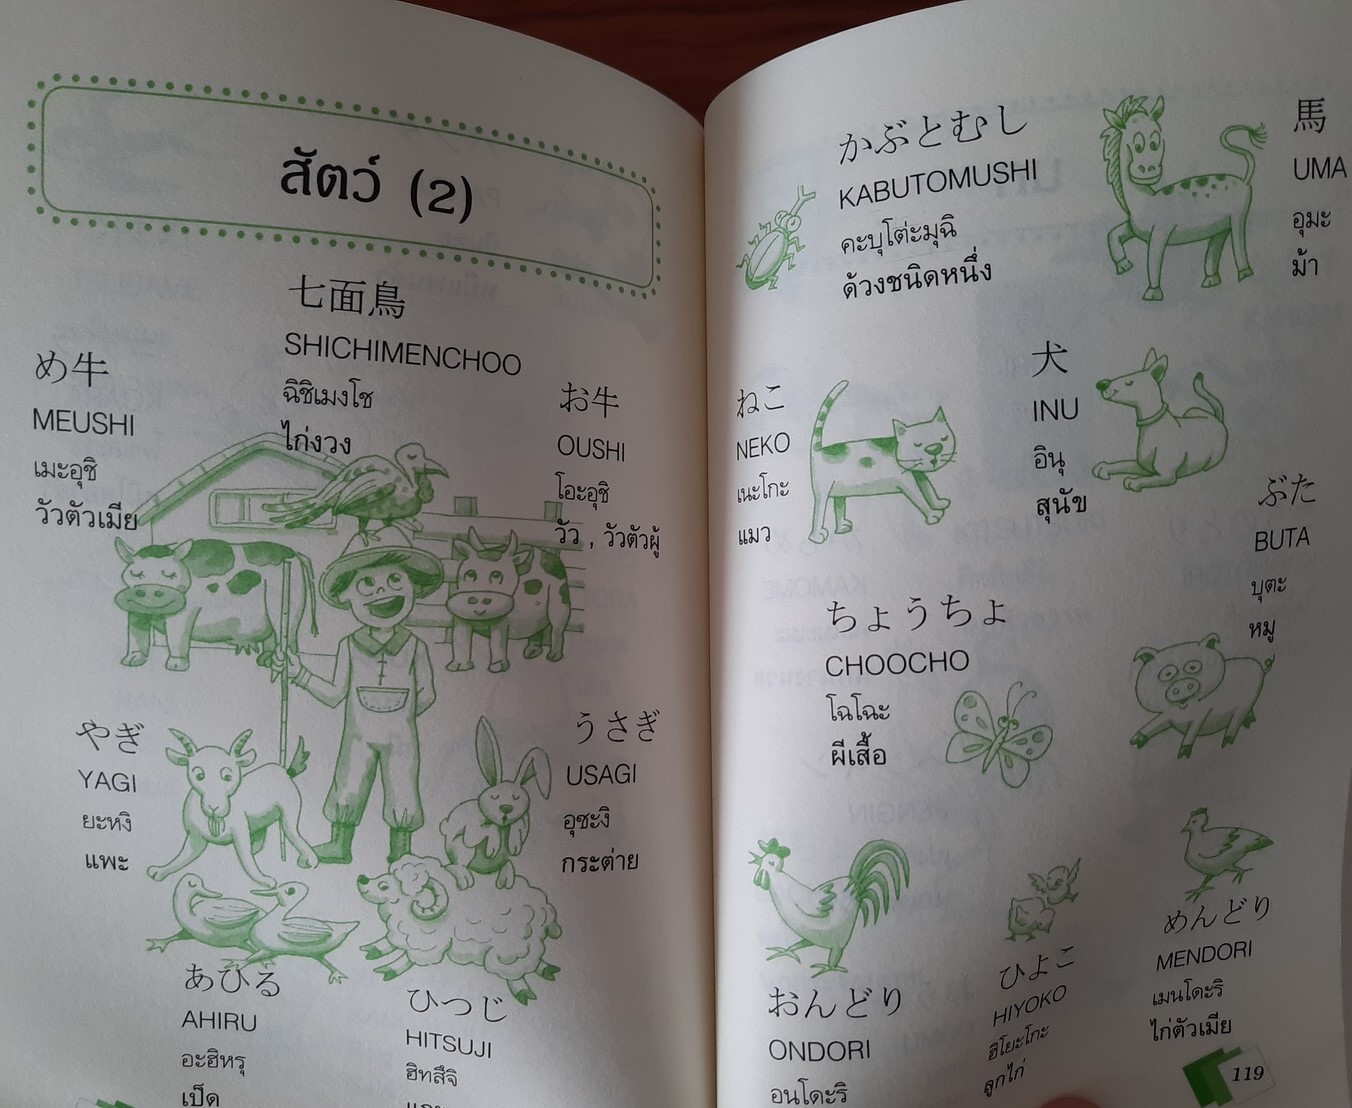 สัตว์ (2)
七面鳥
SHICHIMENCHOO
ฉิชิเมงโช
ไก่งวง
め牛
MEUSHI
เมะอุชิ
วัวตัวเมีย
お牛
OUSHI
โอะอุชิ
วัว , วัวตัวผู้
やぎ
YAGI
ยะหงิ
แพะ
うさぎ
USAGI
อุซะงิ
กระต่าย
あひる
AHIRU
อะฮิหรุ
เป็ด
ひつじ
HITSUJI
ฮิทสึจิ
かぶとむし
KABUTOMUSHI
คะบุโต่ะมุฉิ
ด้วงชนิดหนึ่ง
馬
UMA
อุมะ
ม้า
ねこ
NEKO
เนะโกะ
แมว
犬
INU
อินุ
สุนัข
ぶた
BUTA
บุตะ
หมู
ちょうちょ
CHOOCHO
โฉโฉะ
ผีเสื้อ
おんどり
ONDORI
อนโดะริ
ひよこ
HIYOKO
ฮิโยะโกะ
ลูกไก่
めんどり
MENDORI
เมนโดะริ
ไก่ตัวเมีย
119